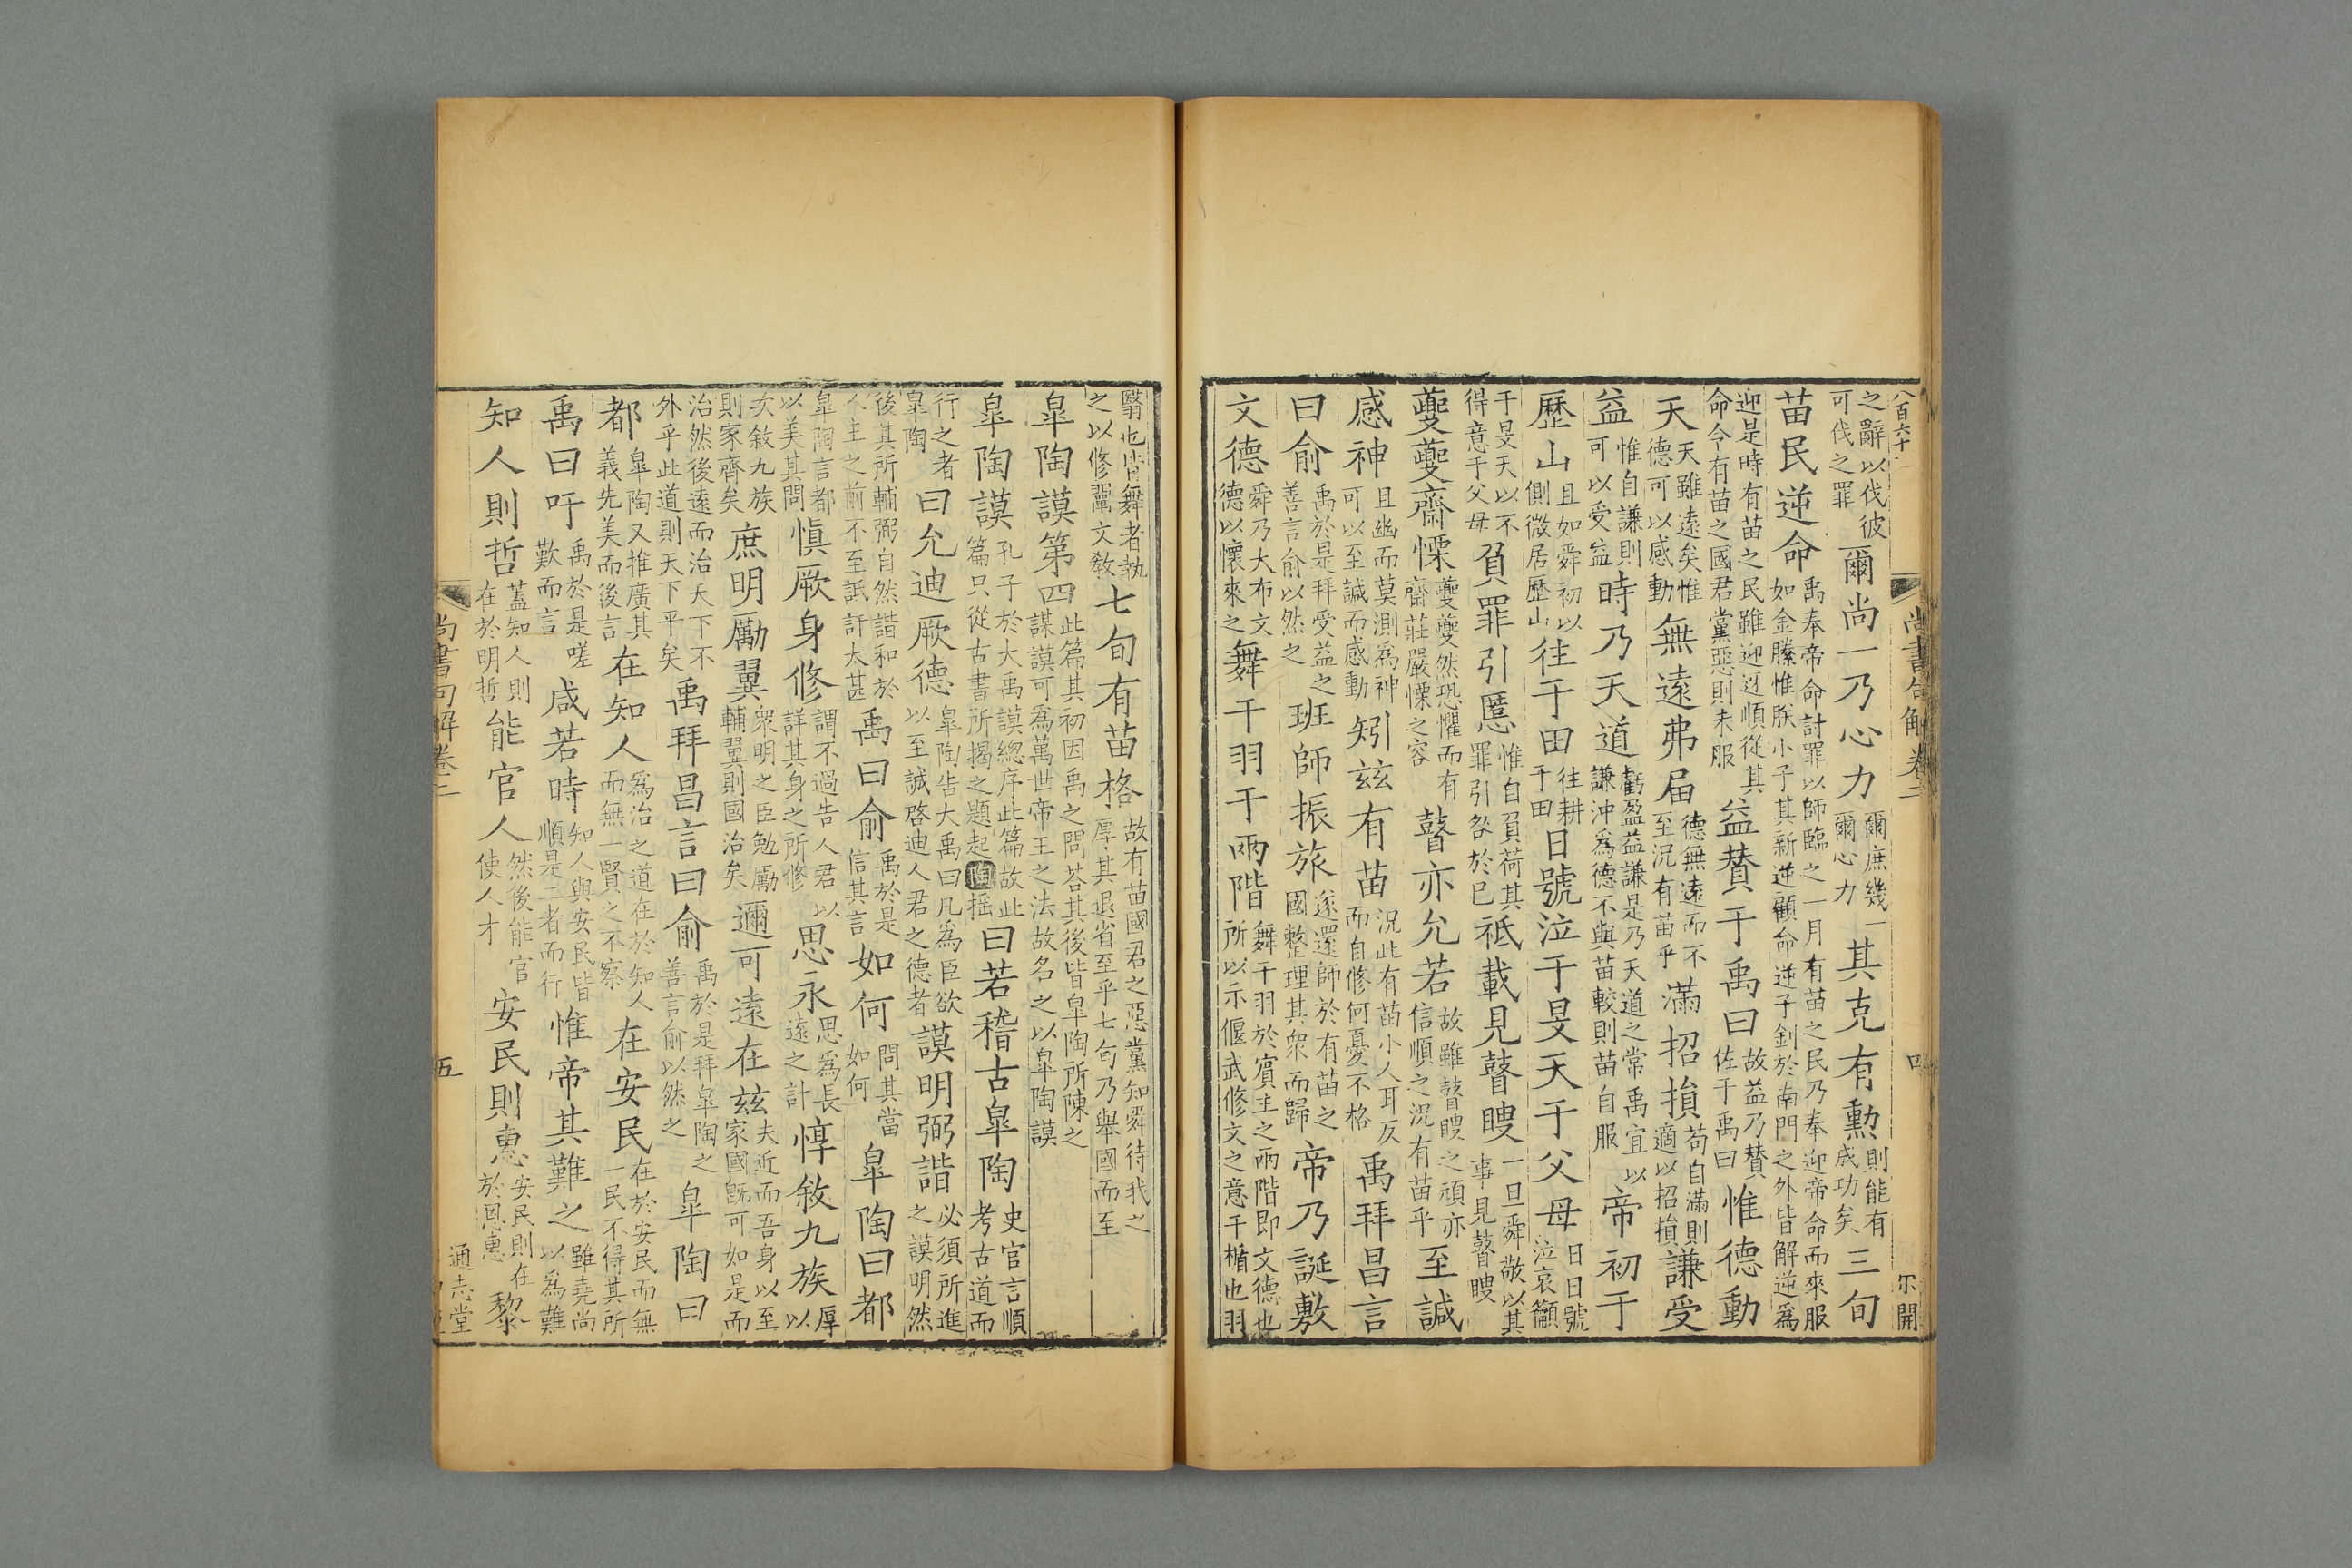 之辭以伐彼可伐之罪爾尚一乃心力爾庶幾一爾心力其克有勲則能有成功矣三旬
苗民逆命禹奉帝命討罪以師臨之一月有苗之民乃奉迎帝命而來服如金縢惟朕小子其新逆顧命逆子釗於南門之外皆解逆爲
迎是時有苗之民雖迎迓順從其命令有苗之國君黨惡則未服益賛于禹曰故益乃賛佐于禹曰惟德動
天天雖遠矣惟德可以感動無遠弗届德無遠而不至況有苗乎滿招損苟自滿則適以招損謙受
益惟自謙則可以受益時乃天道虧盈益謙是乃天道之常禹宜以謙沖爲德不與苗較則苗自服帝初于
歷山且如舜初以側微居歷山往于田往耕于田日號泣于旻天于父母日日號泣哀籲
于旻天以不得意于父母負罪引慝惟自負荷其罪引咎於已祗載見瞽瞍一旦舜敬以其事見瞽瞍
夔夔齋慄夔夔然恐懼而有齋莊嚴慄之容瞽亦允若故雖瞽瞍之頑亦信順之况有苗乎至諴
感神且幽而莫測爲神可以至誠而感動矧兹有苗況此有苗小人耳反而自修何憂不格禹拜昌言
曰俞禹於是拜受益之善言俞以然之班師振旅遂還師於有苗之國整理其衆而歸帝乃誕敷
文德舜乃大布文德以懷來之舞干羽于兩階舞干羽於賓主之兩階即文德也所以示偃武修文之意干楯也羽
八百六十
尚書句解卷二
尔開
翳也皆舞者執之以修闡文敎七旬有苗格故有苗國君之惡黨知舜待我之厚其退省至乎七旬乃舉國而至
臯陶謨第四此篇其初因禹之問荅其後皆臯陶所陳之謀謨可爲萬世帝王之法故名之以臯陶謨
臯陶謨孔子於大禹謨總序此篇故此篇只從古書所揭之題起陶揺曰若稽古臯陶史官言順考古道而
行之者臯陶曰允迪厥德臯陶告大禹曰凡爲臣欲以至誠啓迪人君之德者謨明弼諧必須所進之謨明然
後其所輔弼自然諧和於人主之前不至詆訐太甚禹曰俞禹於是信其言如何問其當如何臯陶曰都
臯陶言都以美其問愼厥身修謂不過告人君以詳其身之所修思永思爲長遠之計惇敘九族厚以
次敘九族則家齊矣庶明勵翼衆明之臣勉勵輔翼則國治矣邇可遠在兹夫近而吾身以至家國旣可如是而
治然後遠而治天下不外乎此道則天下平矣禹拜昌言曰俞禹於是拜臯陶之善言俞以然之臯陶曰
都臯陶又推廣其義先美而後言在知人爲治之道在於知人而無一賢之不察在安民在於安民而無一民不得其所
禹曰吁禹於是嗟歎而言咸若時知人與安民皆順是二者而行惟帝其難之雖堯尚以爲難
知人則哲蓋知人則在於明哲能官人然後能官使人才安民則惠安民則在於恩惠黎
尚書句解卷二
五
通志堂